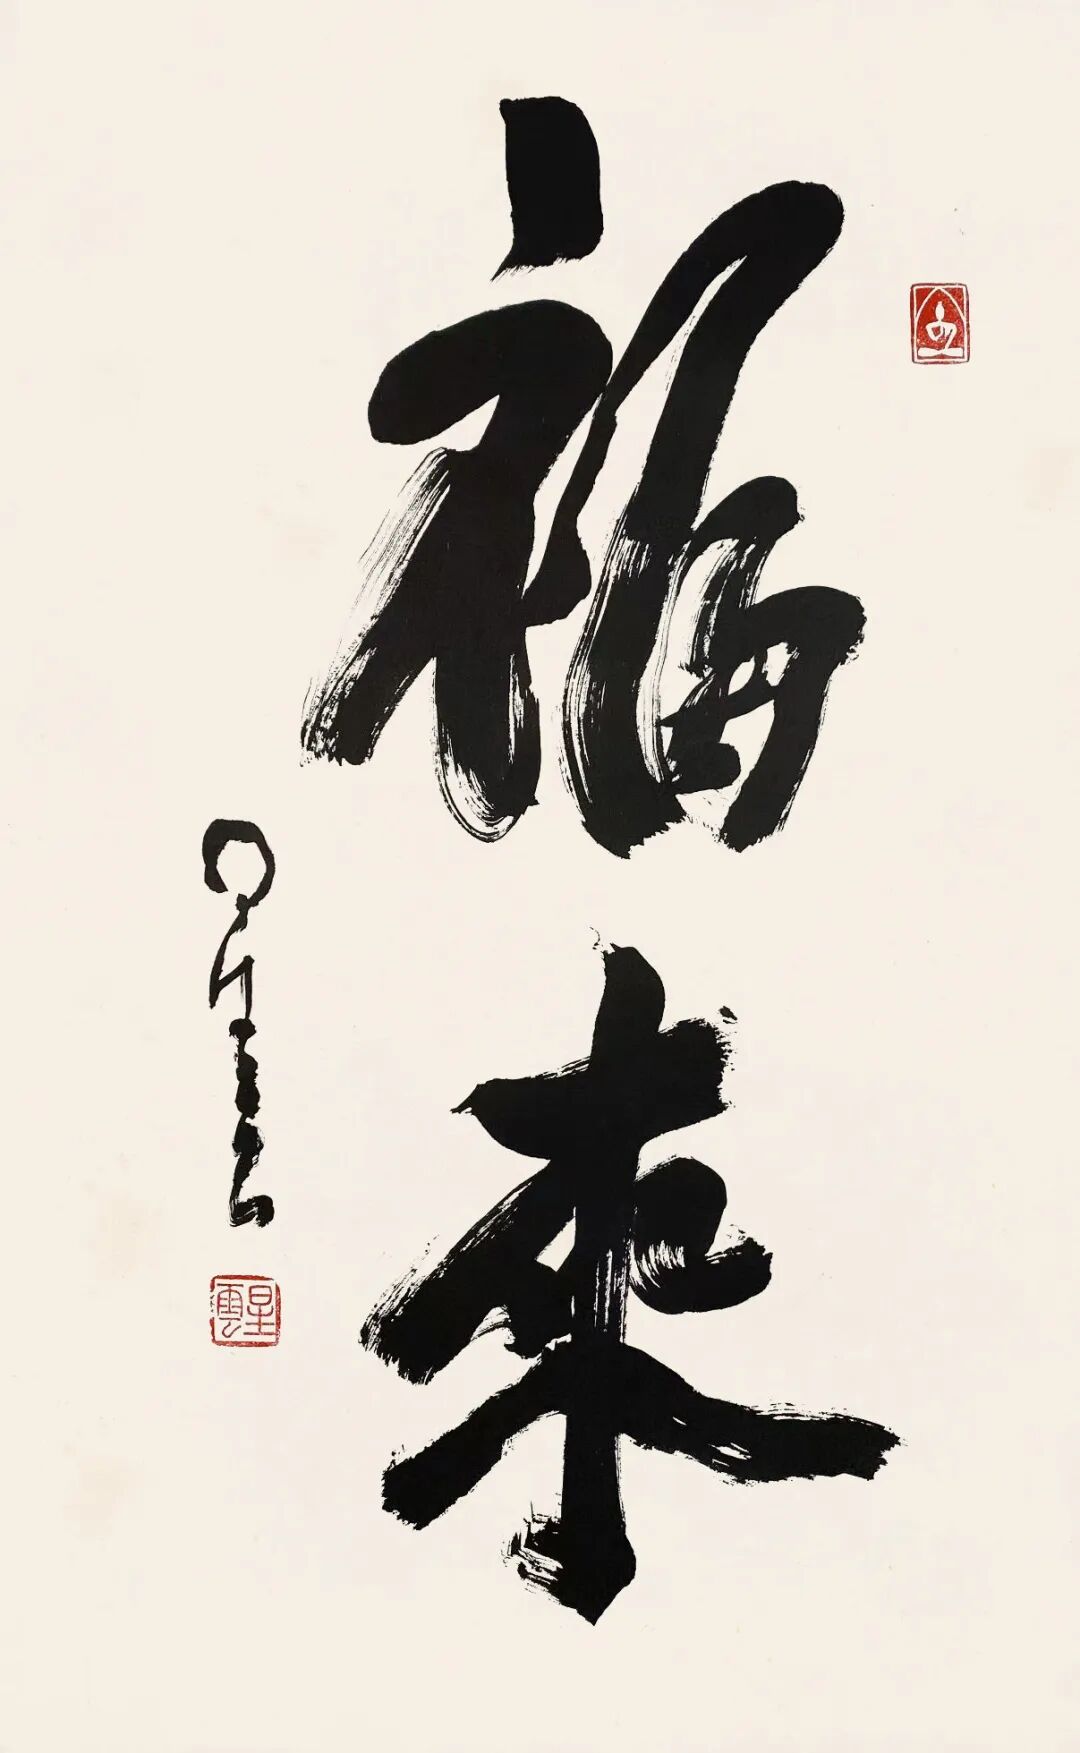 福來
星雲
星雲